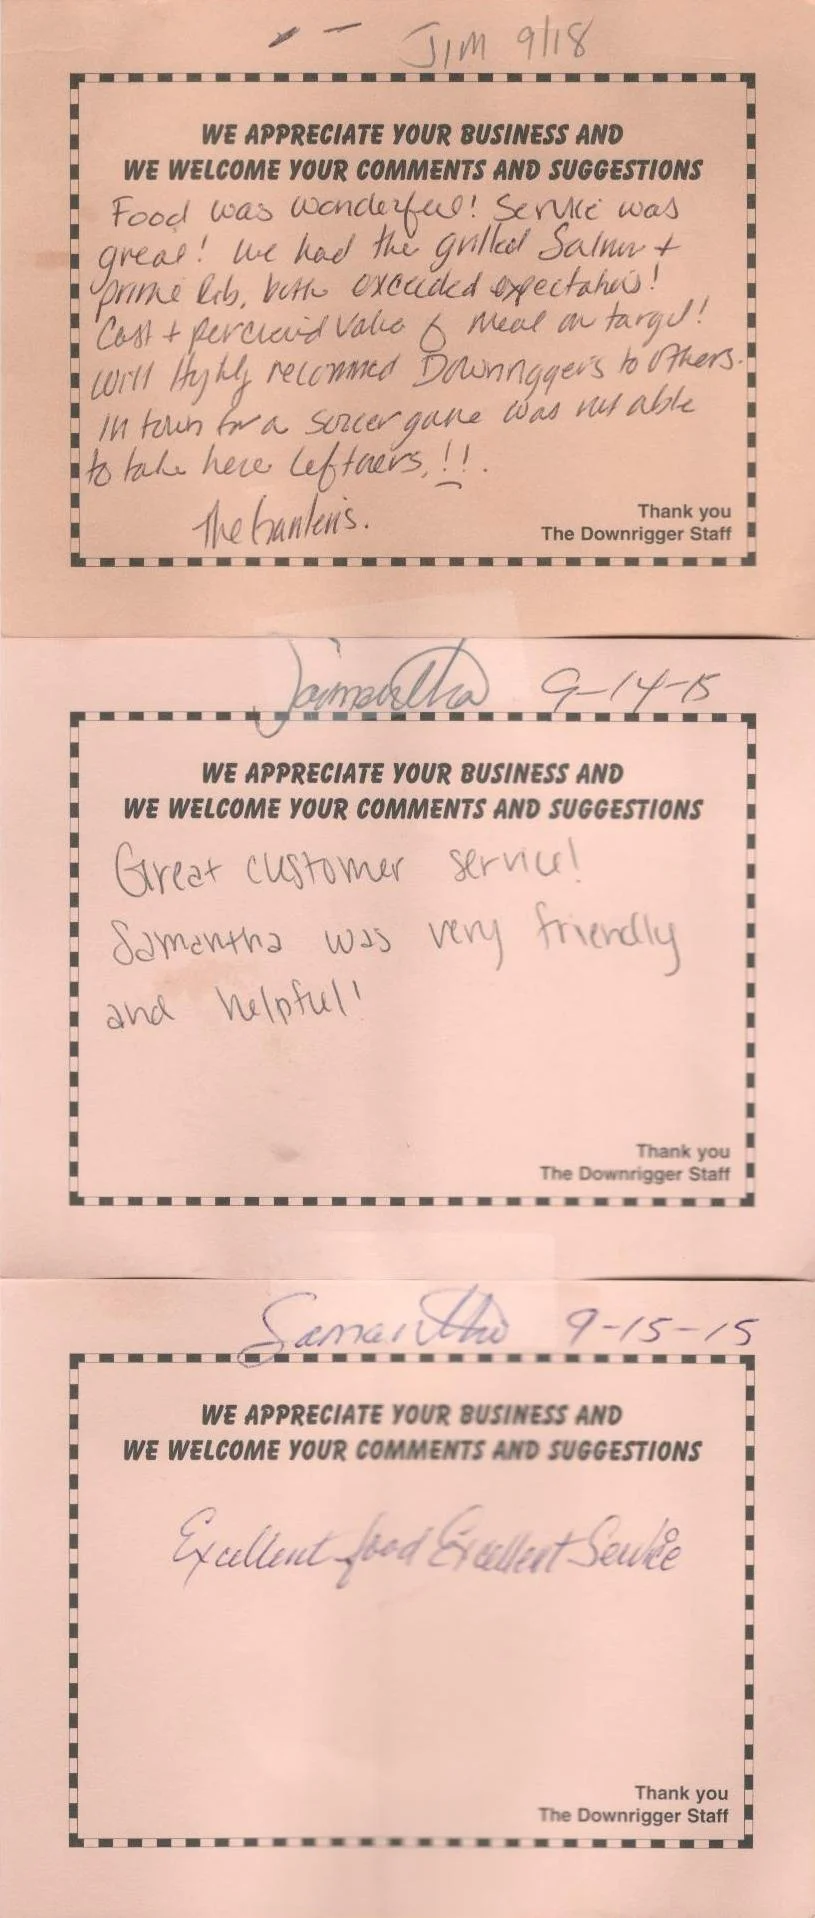 JIM 9/18
WE APPRECIATE YOUR BUSINESS AND
WE WELCOME YOUR COMMENTS AND SUGGESTIONS
Food was wonderful! Service was
great! We had the grilled Salmon +
prime Rib, both exceeded expectations!
Cost + percieved Value of meal on target!
Will Highly recommed Downriggers to others.
In town for a soccer game was not able
to take here leftovers,!!.
Thank you
The
The Downrigger Staff
Samantha 9-14-15
WE APPRECIATE YOUR BUSINESS AND
WE WELCOME YOUR COMMENTS AND SUGGESTIONS
Great customer service!
Samantha was very friendly
and helpful!
Thank you
The Downrigger Staff
Samantha 9-15-15
WE APPRECIATE YOUR BUSINESS AND
WE WELCOME YOUR COMMENTS AND SUGGESTIONS
Excellent food Excellent Service
Thank you
The Downrigger Staff